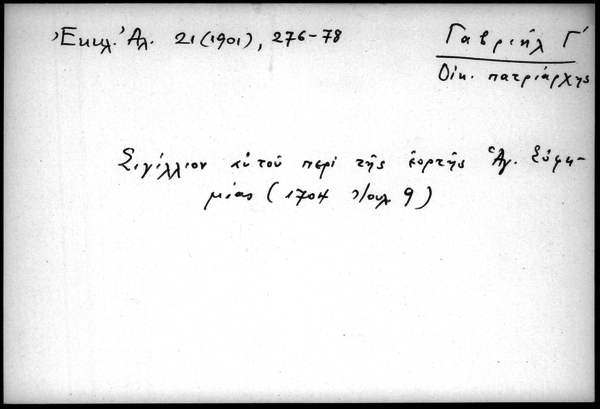 Ἐκκλ. Ἀλ. 21 (1901), 276-78
Γαβριήλ Γ΄
Οἰκ. πατριάρχης
Σιγίλλιον αὐτοῦ περί τῆς ἑορτῆς Ἁγ. Εὐφη-
μίας (1704 Ἰουλ 9)